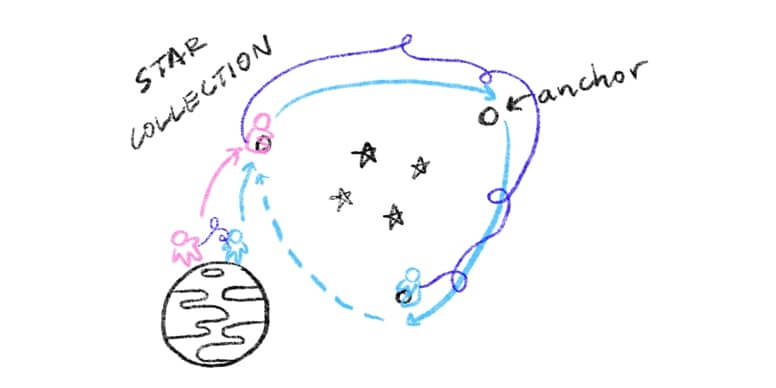 STAR
COLLECTION
anchor